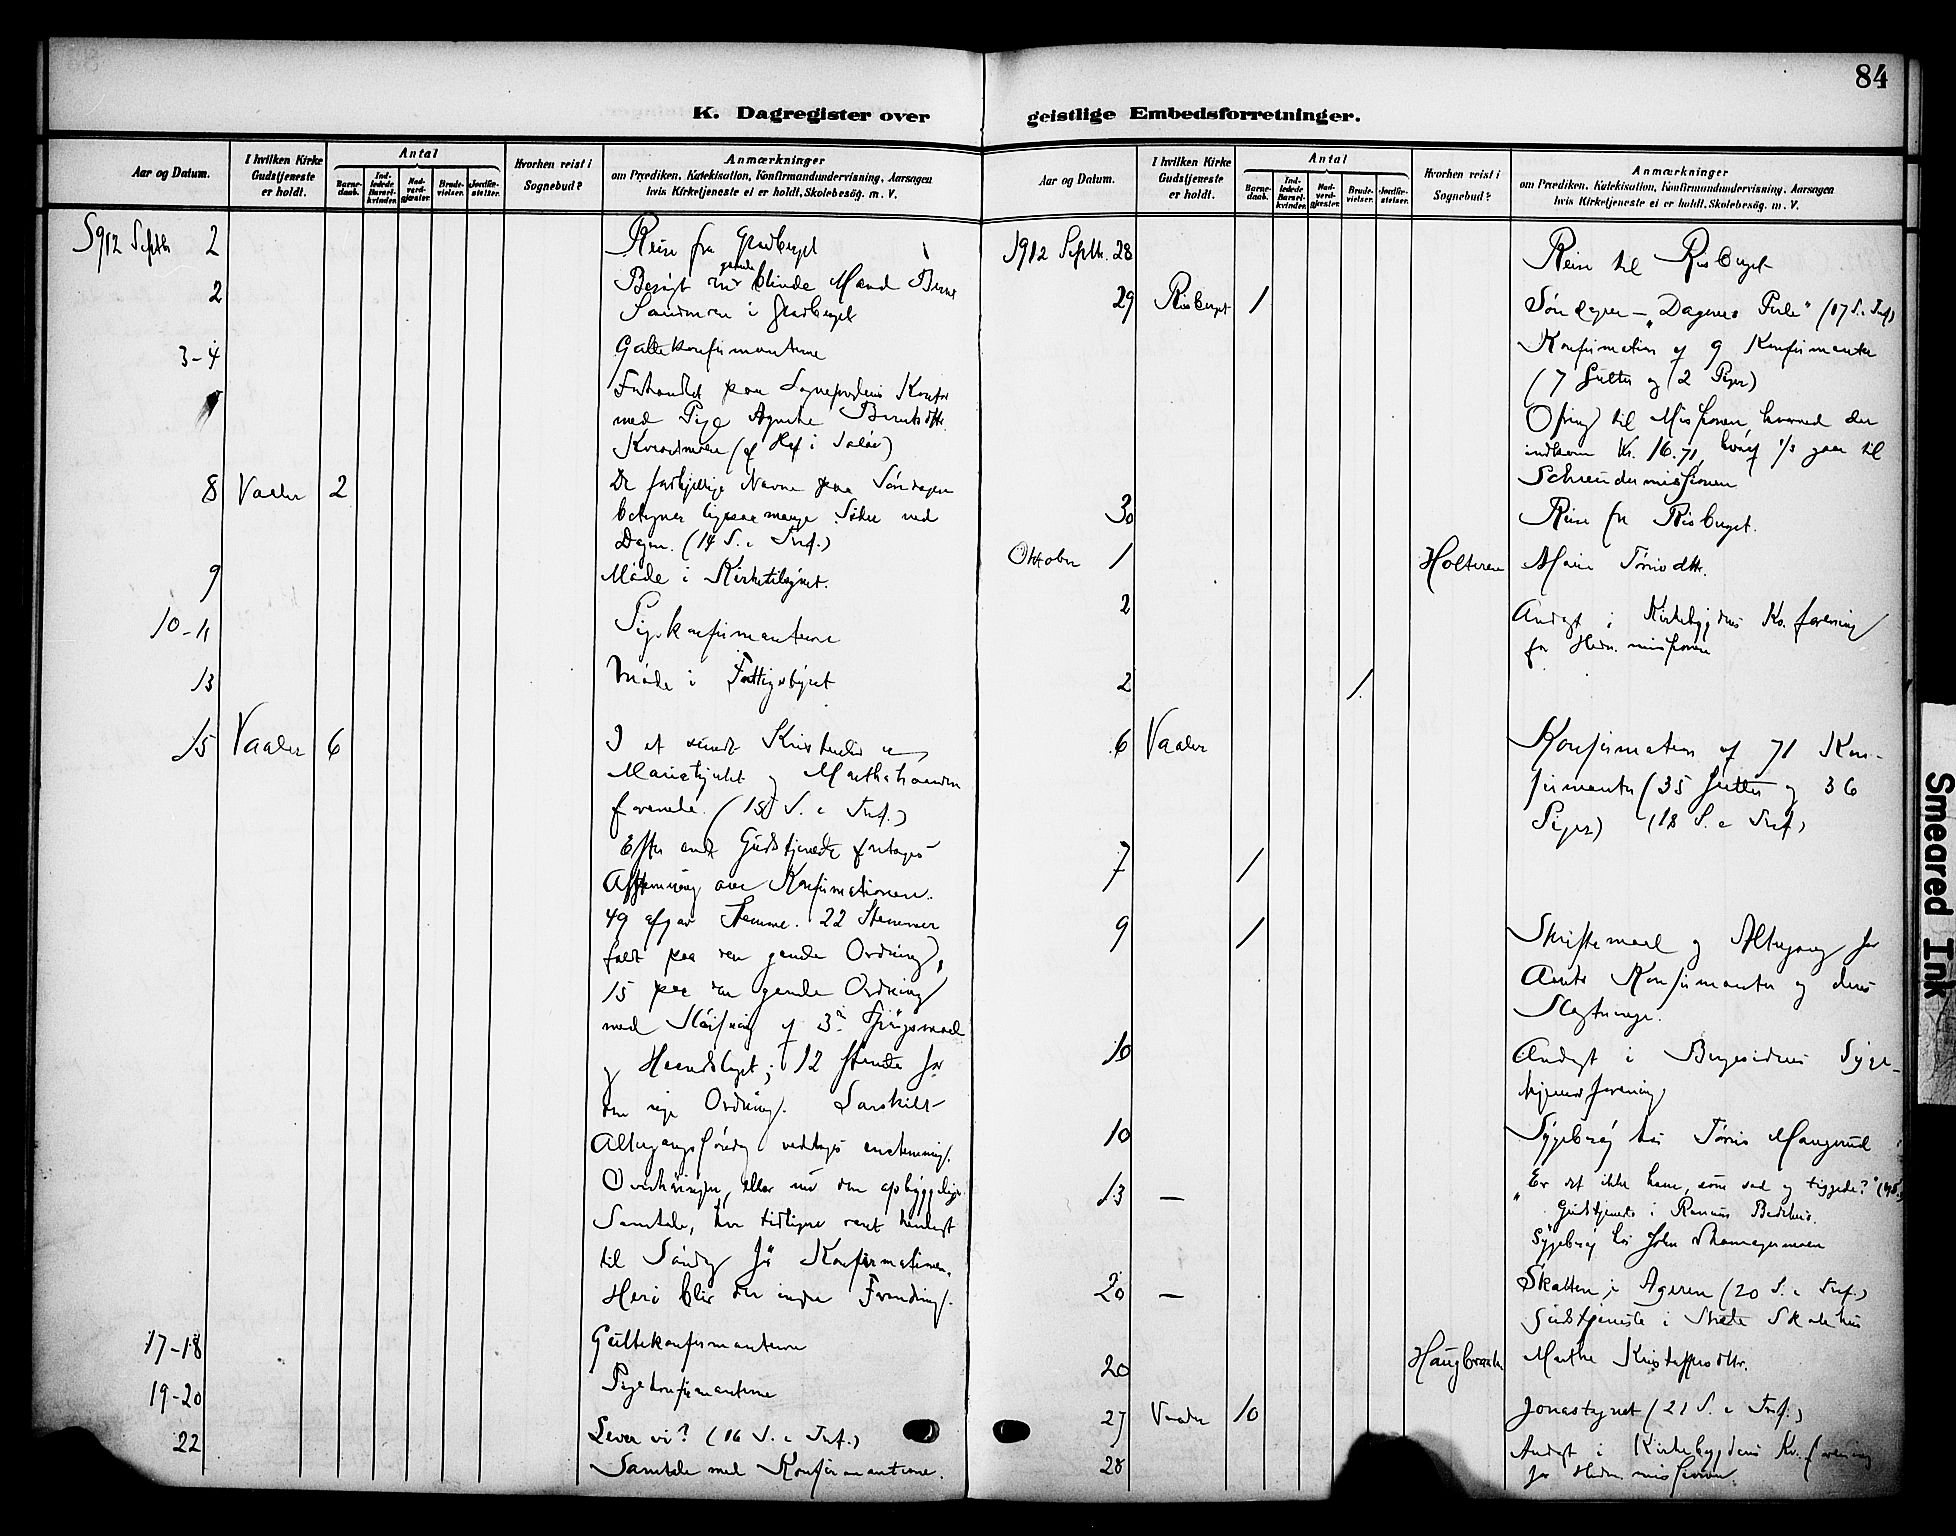 84
K. Dagregister over
geistlige Embedsforretninger.
Aar og Datum.
I hvilken Kirke Gudstjeneste er holdt.
Antal
Barne-daab.
Ind-ledede Barsel-kvinder.
Nad-verd-gjæster.
Brude-vielser.
Jordfæ-stelser.
Hvorhen reist i Sognebud?
Anmærkninger
om Prædiken, Katekisation, Konfirmandundervisning, Aarsagen
hvis Kirketjeneste ei er holdt, Skolebesøg. m. V.
1912 Septbr 2 Reise fra Gravberget
2 Besøgt den gamle blinde Mand Bernt
Sandmoen i Gravberget
3-4 Guttekonfirmanterne
Forhandlet paa Sogneprestens Kontor
med Pige Agnethe Berntsdtr.
(af Hof i Solør)
8 Vaaler 2 De forskjellige Navne paa Søndagen
betegner ligesaa mange Sider ved
Dagen. (14 S. e. Tref.)
9 Møde i Kirketilsynet.
10-11 Pigekonfirmanterne
13 Møde i Fattigstyret
15 Vaaler 6 I et sundt Kristenliv er
Mariasindet og Marthahaanden
forenede. (15 S. e. Tref.)
Efter endt Gudstjeneste foretoges
Afstemning over Konfirmationen.
49 afgav Stemme. 22 Stemmer
faldt paa den gamle Ordning,
15 paa den gamle Ordning
med Sløifning af 3die Spørgsmaal
og Haandslaget; 12 stemte for
den nye Ordning. Særskilt
Altergangsførelse vedtoges enstemmig.
Overhøringen, eller nu den opbyggelige
Samtale, har tidligere været henlagt
til Søndag før Konfirmationen.
Heri blir der ingen Forandring.
17-18 Guttekonfirmanterne
19-20 Pigekonfirmanterne
22 Lever vi? (16 S. e. Tref.)
Samtale med Konfirmanterne.
Aar og Datum.
I hvilken Kirke Gudstjeneste er holdt.
Antal
Barne-daab.
Ind-ledede Barsel-kvinder.
Nad-verd-gjæster.
Brude-vielser.
Jordfæ-stelser.
Hvorhen reist i Sognebud?
Anmærkninger
om Prædiken, Katekisation, Konfirmandundervisning, Aarsagen
hvis Kirketjeneste ei er holdt, Skolebesøg. m. V.
1912 Septbr. 28 Reise til Risberget
29 Risberget 1 Søndagen - "Dagenes Perle" (17 S. e. Tref)
Konfirmation af 9 Konfirmanter
(7 Gutter og 2 Piger)
Ofring til Missionen, hvorved der
indkom Kr. 16.71, hvoraf 1/3 gaar til
Schreudermissionen
30 Reise fra Risberget.
Oktober 1 Holteren Marie Tønsdtr.
2 Andagt i Kirkebygdens Kv. forening
for Hedn. missionen
2 1
6 Vaaler Konfirmation af 71 Kon-
firmanter (35 Gutter og 36
Piger) (18 S. e. Tref.)
7 1
9 1 Skriftemaal og Altergang for
Aarets Konfirmanter og deres
Slægtninge.
10 Andagt i Bergesidens Syge-
pleierforening
10 Sygebesøg hos Tønis Haugerud
13 — "Er det ikke ham, som sad og tiggede?"
Gudstjeneste i Bedehus.
Sygebesøg hos John
20 — Skatten i Ageren (20 S. e. Tref.)
Gudstjeneste i Skolehus
20 Haugbraaten Marthe Kristoffersdtr.
27 Vaaler 10 Jonastegnet (21 S. e. Tref.)
28 Andagt i Kirkebygdens Kv. forening
for Hedn. missionen.
Smeared Ink